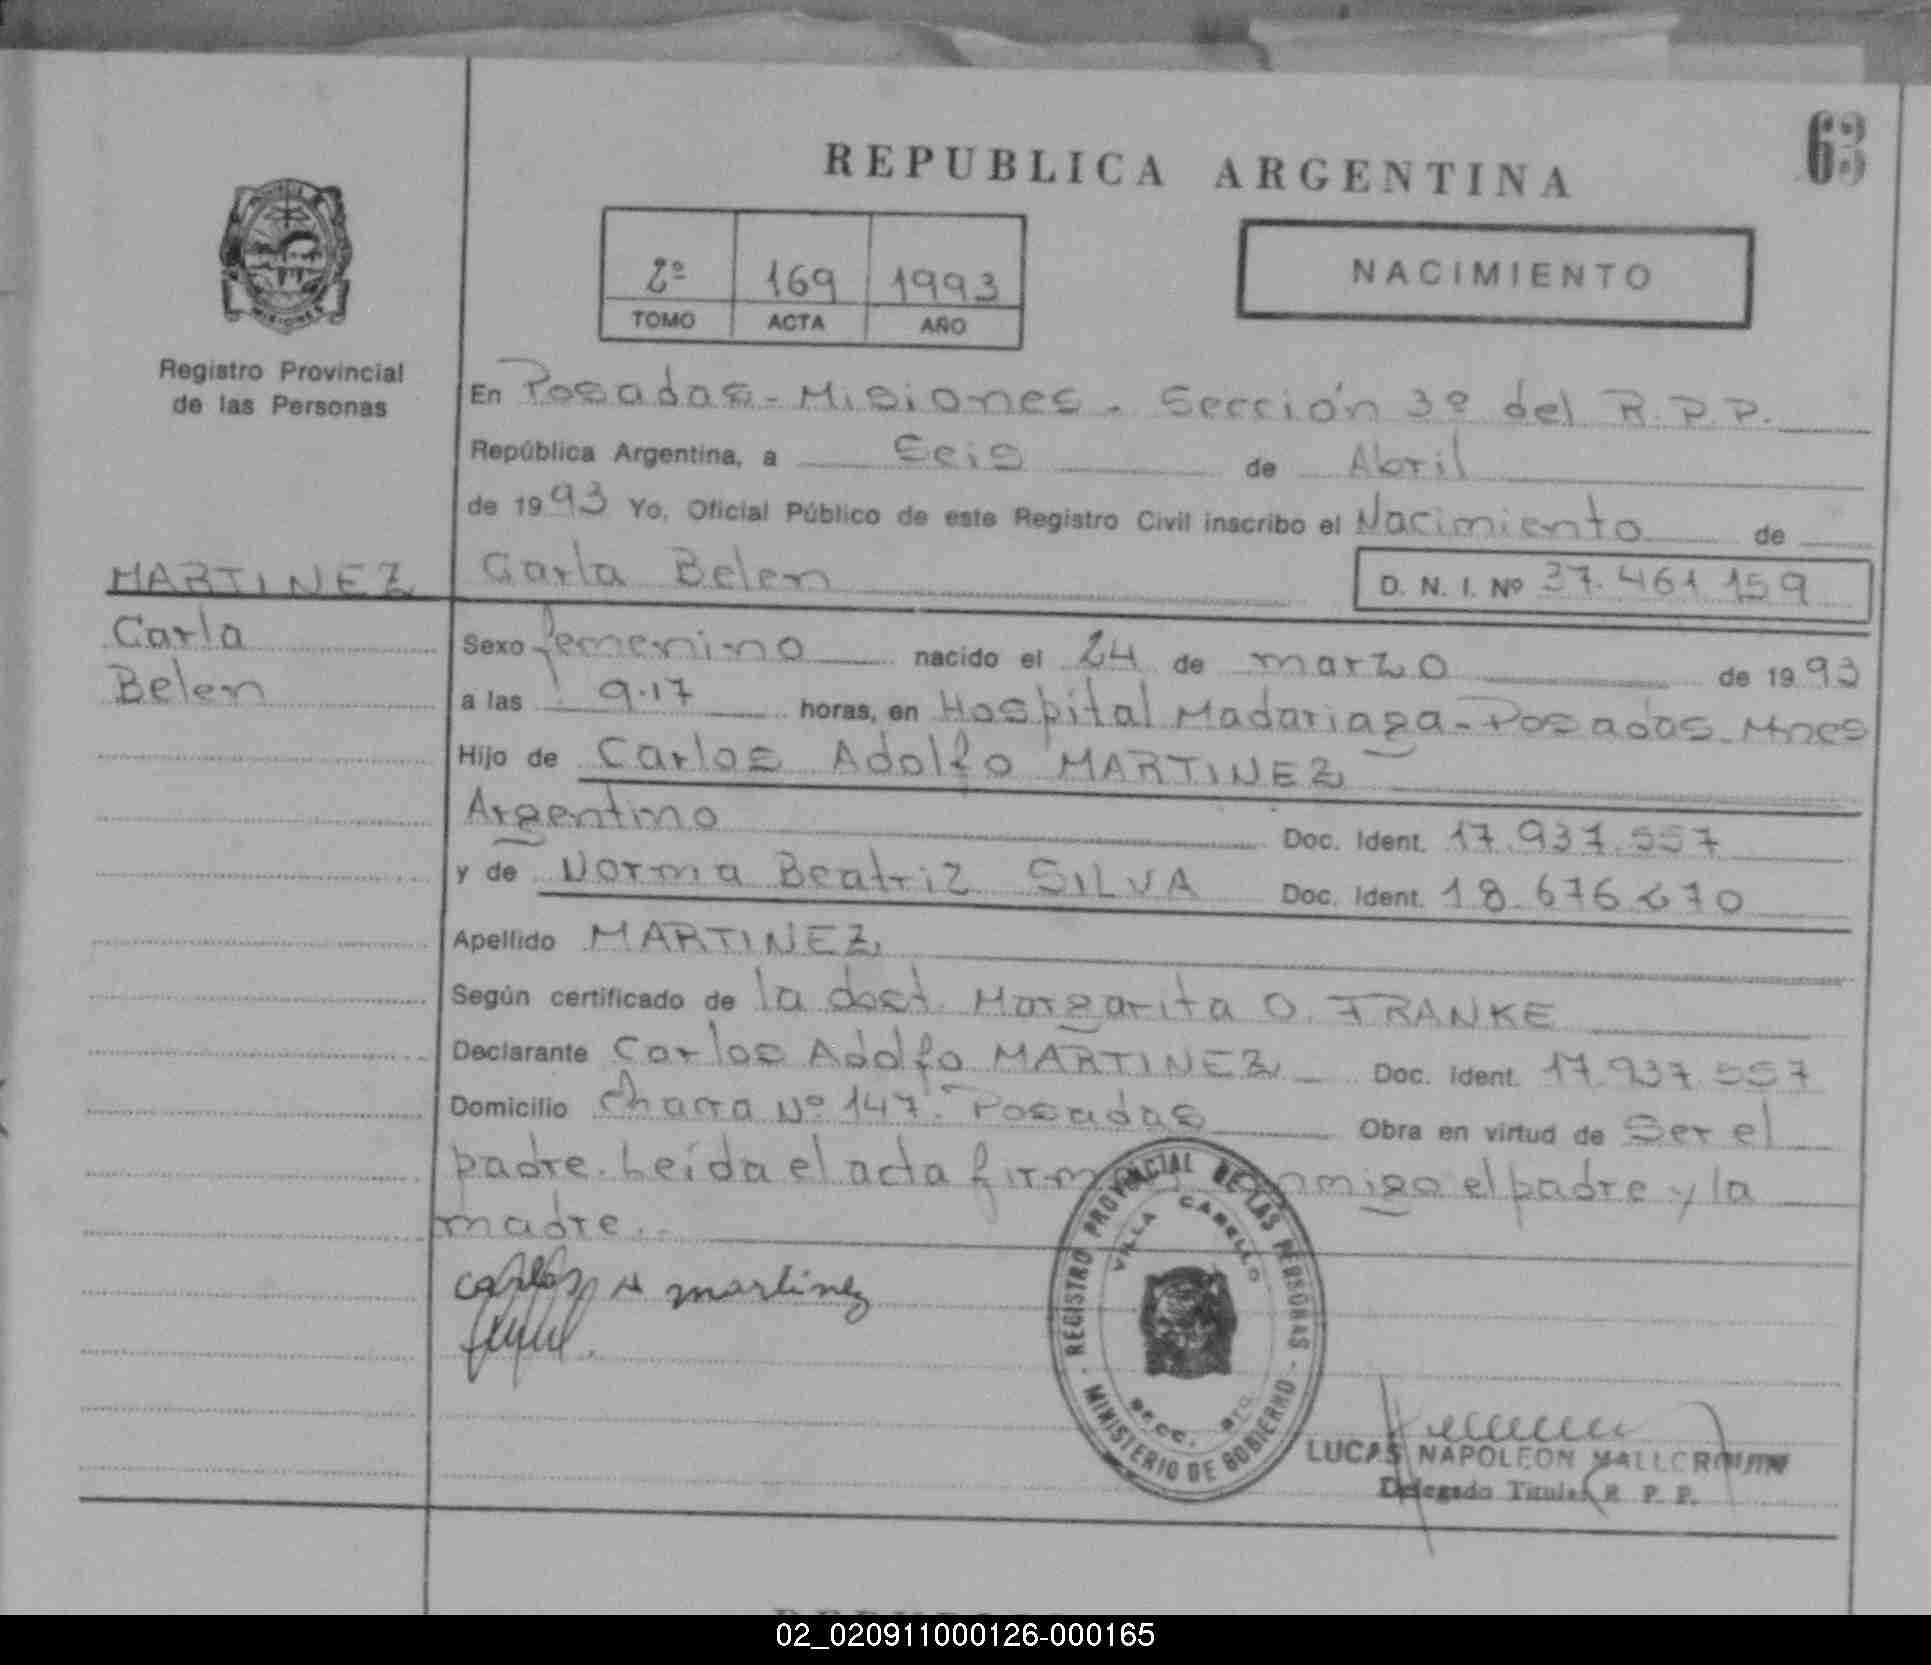 63
REPUBLICA ARGENTINA
2º 169 1993
TOMO ACTA AÑO
NACIMIENTO
Registro Provincial
de las Personas
En Posadas - Misiones. Sección 3º del R.P.P.
República Argentina, a Seis de Abril
de 1993 Yo, Oficial Público de este Registro Civil inscribo el Nacimiento de
Carla Belen D. N. I. Nº 37.461.159
MARTINEZ
Carla
Belen
Sexo femenino nacido el 24 de marzo de 1993
a las 9.17 horas, en Hospital Madariaga - Posadas - Mnes
Hijo de Carlos Adolfo MARTINEZ
Argentino Doc. Ident. 17.937.557
y de Norma Beatriz SILVA Doc. Ident. 18.676.670
Apellido MARTINEZ
Según certificado de la doct. Margarita O. FRANKE
Declarante Carlos Adolfo MARTINEZ Doc. Ident. 17.937.557
Domicilio Chacra Nº 147. Posadas Obra en virtud de Ser el
padre. Leída el acta conmigo el padre y la
madre.
Carlos A martinez
REGISTRO PROVINCIAL DE LAS PERSONAS
VILLA CABELLO
MINISTERIO DE GOBIERNO
LUCAS NAPOLEON
Delegado Titular R. P. P.
02_020911000126-000165